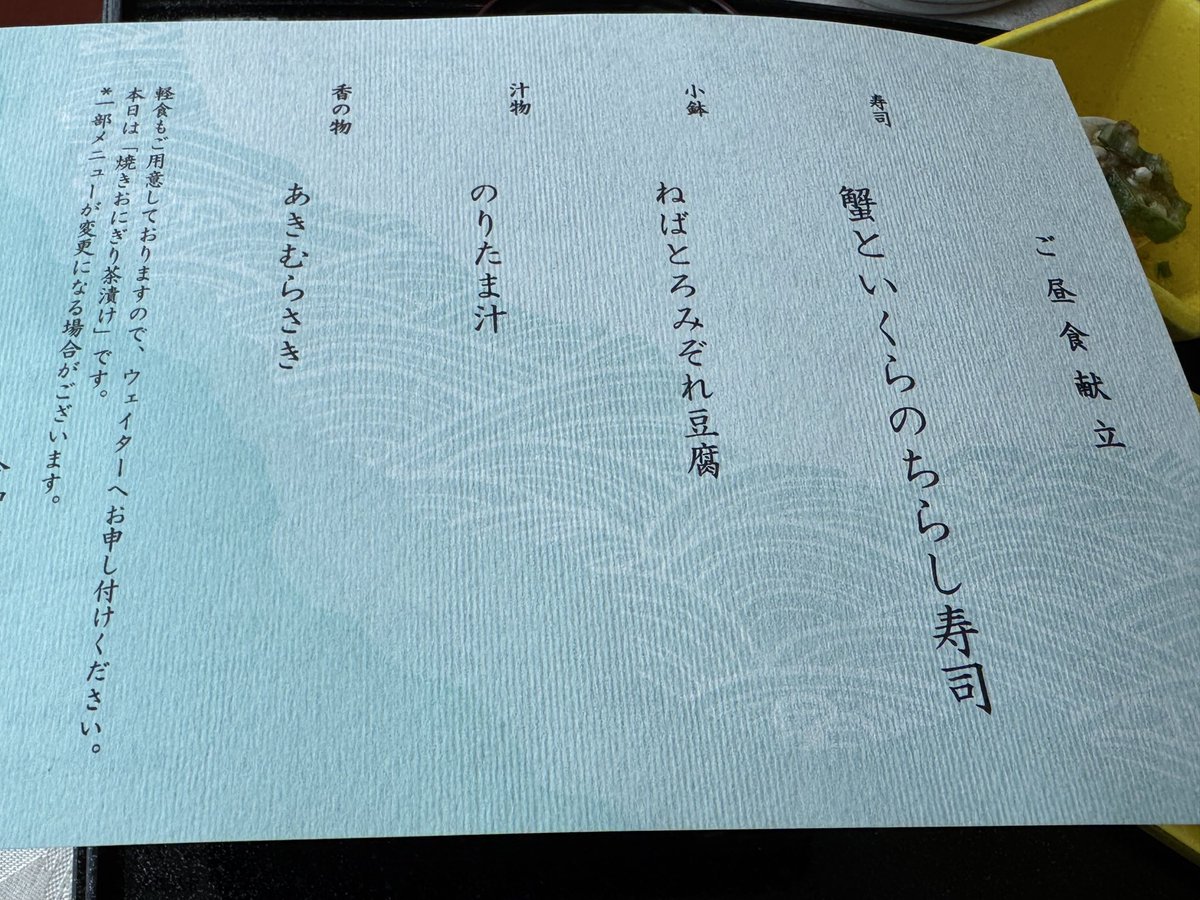 ご昼食献立
寿司
蟹といくらのちらし寿司
小鉢
ねばとろみぞれ豆腐
汁物
のりたま汁
香の物
あきむらさき
軽食もご用意しておりますので、ウェイターへお申し付けください。
本日は「焼きおにぎり茶漬け」です。
*一部メニューが変更になる場合がございます。